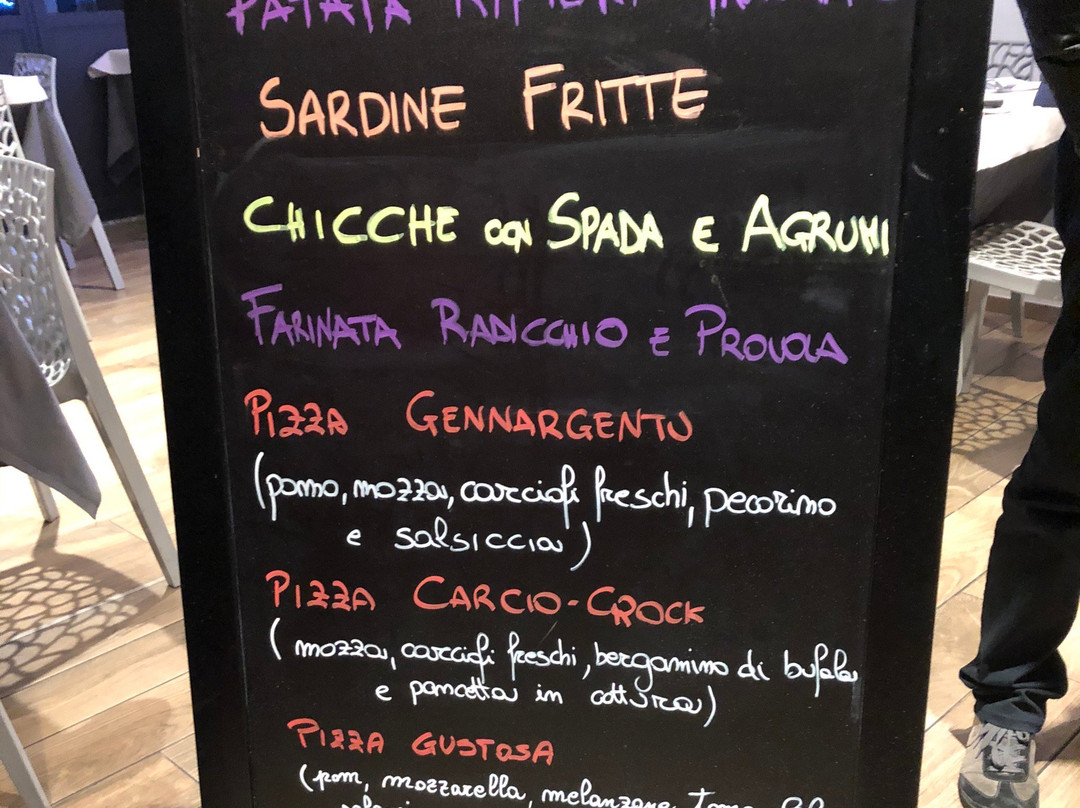 PATATA RIPIENA
SARDINE FRITTE
CHICCHE CON SPADA E AGRUMI
FARINATA RADICCHIO E PROVOLA
PIZZA GENNARGENTU
(pomo, mozza, carciofi freschi, pecorino
e salsiccia)
PIZZA CARCIO-CROCK
(mozza, carciofi freschi, bergamino di bufala
e pancetta in cottura)
PIZZA GUSTOSA
(pom, mozzarella, melanzane,